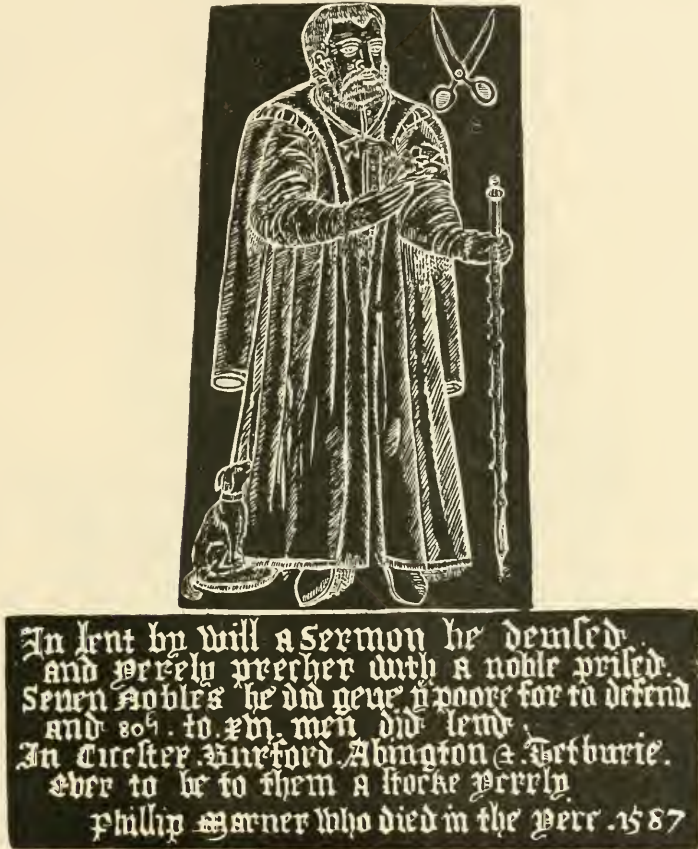 In lent by will a sermon he deuised
and yerely precher with a noble prised
Seuen Nobles he did geue ỹ poore for to defend
and 80ˡⁱ . to . xvi . men did lend .
In Cicester . Burford . Abington & Tetburie .
ever to be to them a stocke Yerely
Phillip Marner who died in the yere . 1587